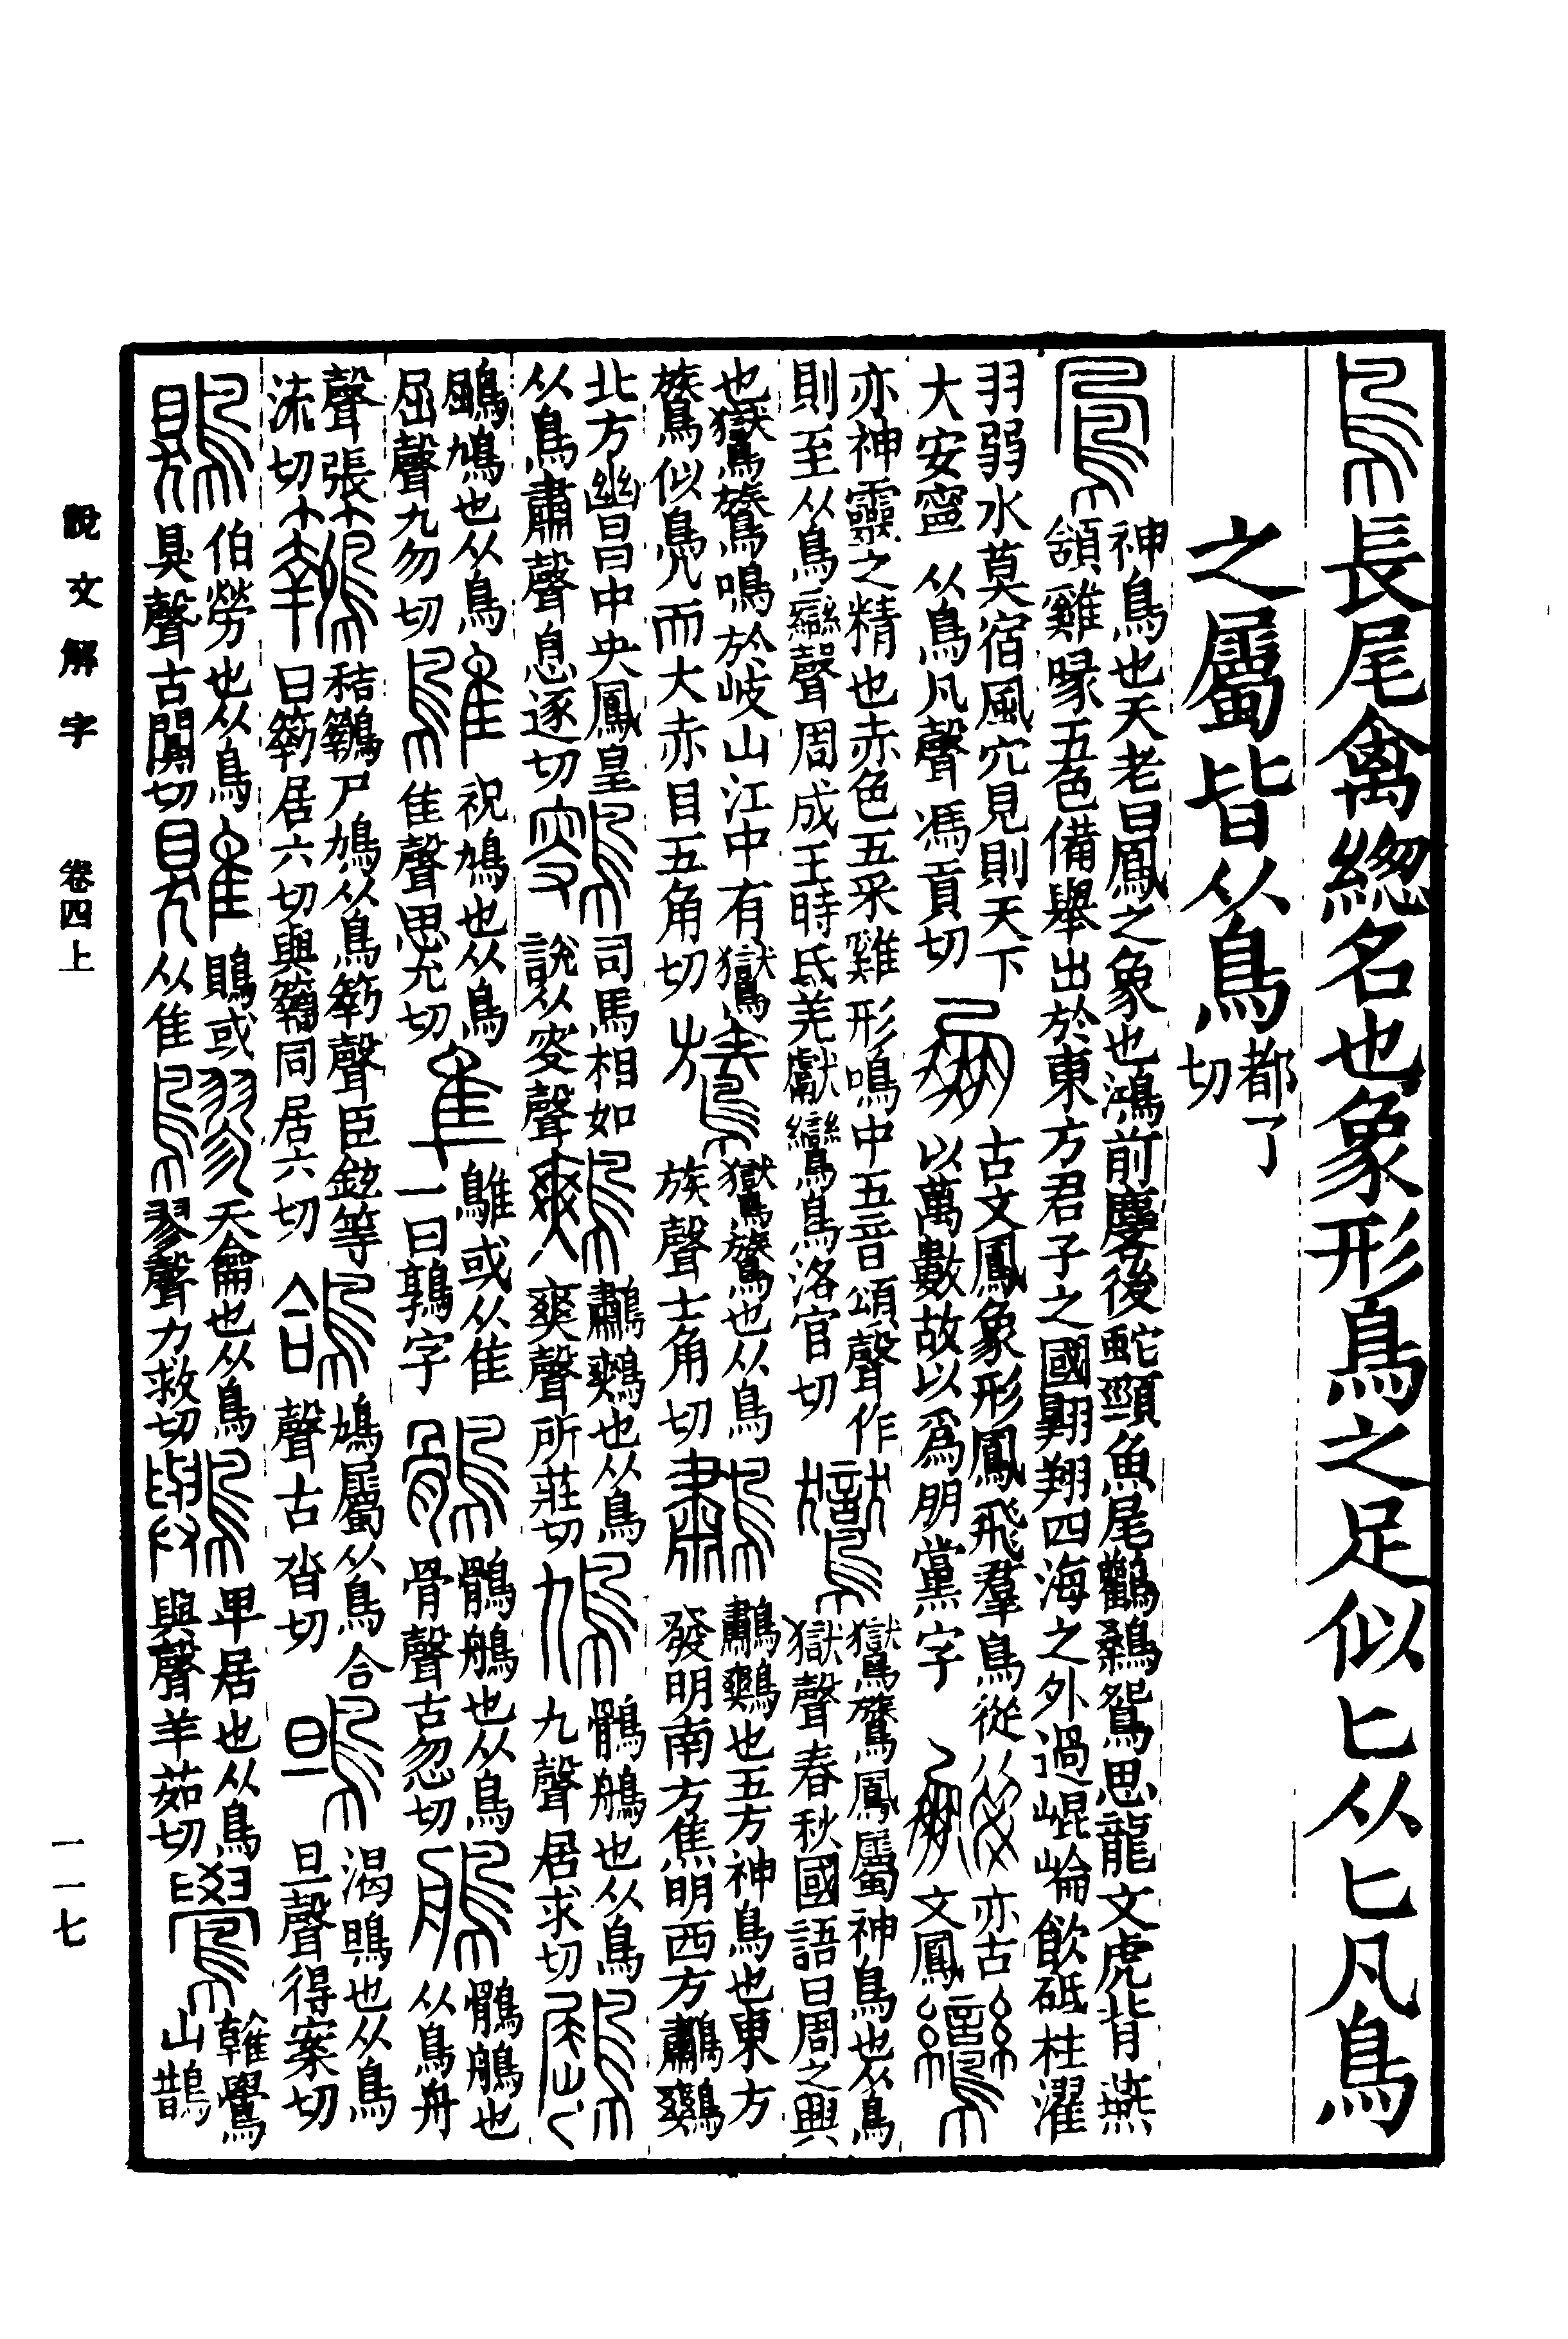 鳥長尾禽緫名也象形鳥之足似匕从匕凡鳥
之屬皆从鳥都了切
鳳神鳥也天老曰鳳之象也鴻前麐後蛇頸魚尾鸛顙鴛思龍文虎背燕頷雞喙五色備舉出於東方君子之國翺翔四海之外過崐崘飲砥柱濯
羽弱水莫宿風穴見則天下大安寧从鳥凡聲馮貢切朋古文鳳象形鳳飛羣鳥從以萬數故以爲朋黨字鵬亦古文鳳鸞
亦神靈之精也赤色五采雞形鳴中五音頌聲作則至从鳥䜌聲周成王時氐羌獻鸞鳥洛官切鸑鸑鷟鳳屬神鳥也从鳥獄聲春秋國語曰周之興
也鸑鷟鳴於岐山江中有鸑鷟似鳧而大赤目五角切鷟鸑鷟也从鳥族聲士角切鷫鷫鷞也五方神鳥也東方發明南方焦明西方鷫鷞
北方幽昌中央鳳皇从鳥肅聲息逐切䎘司馬相如說从叜聲鷞鷫鷞也从鳥爽聲所莊切鳩鶻鵃也从鳥九聲居求切鶌
鶌鳩也从鳥屈聲九勿切鵻祝鳩也从鳥隹聲思允切隼鵻或从隹一一曰鶉字鶻鶻鵃也从鳥骨聲古忽切鵃鶻鵃也从鳥舟
聲張流切秸鶷尸鳩从鳥𥷚聲臣鉉等曰𥷚居六切與𥷚同居六切鴿鳩屬从鳥合聲古沓切鴠渴鴠也从鳥旦聲得案切
鶪伯勞也从鳥狊聲古闃切鶪或从隹鷚天龠也从鳥翏聲力救切鸒卑居也从鳥與聲羊茹切鷽雗鷽山鵲
說文解字 卷四上
一一七